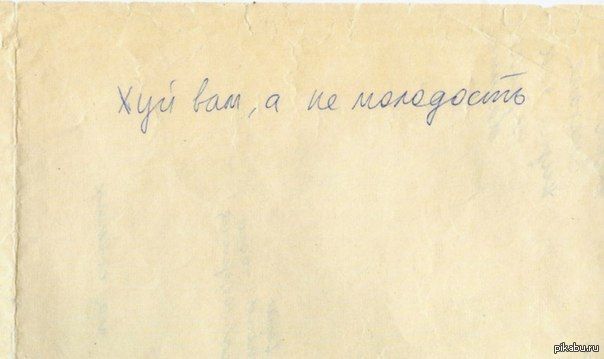 Хуй вам, а не молодость
pikabu.ru